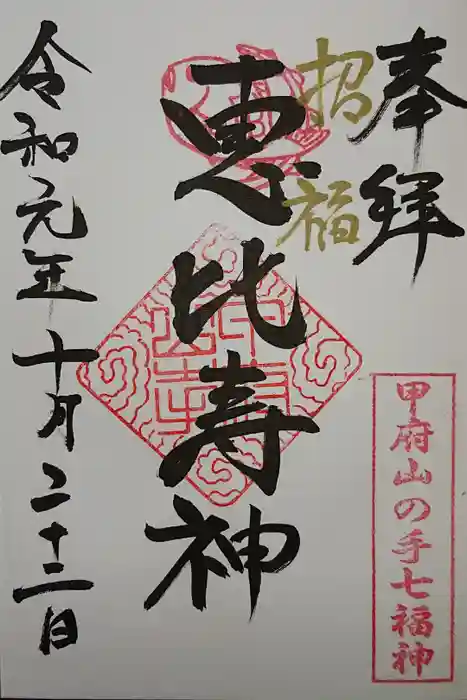 奉拝
招福
恵比寿神
令和元年十月二十三日
甲府山の手七福神